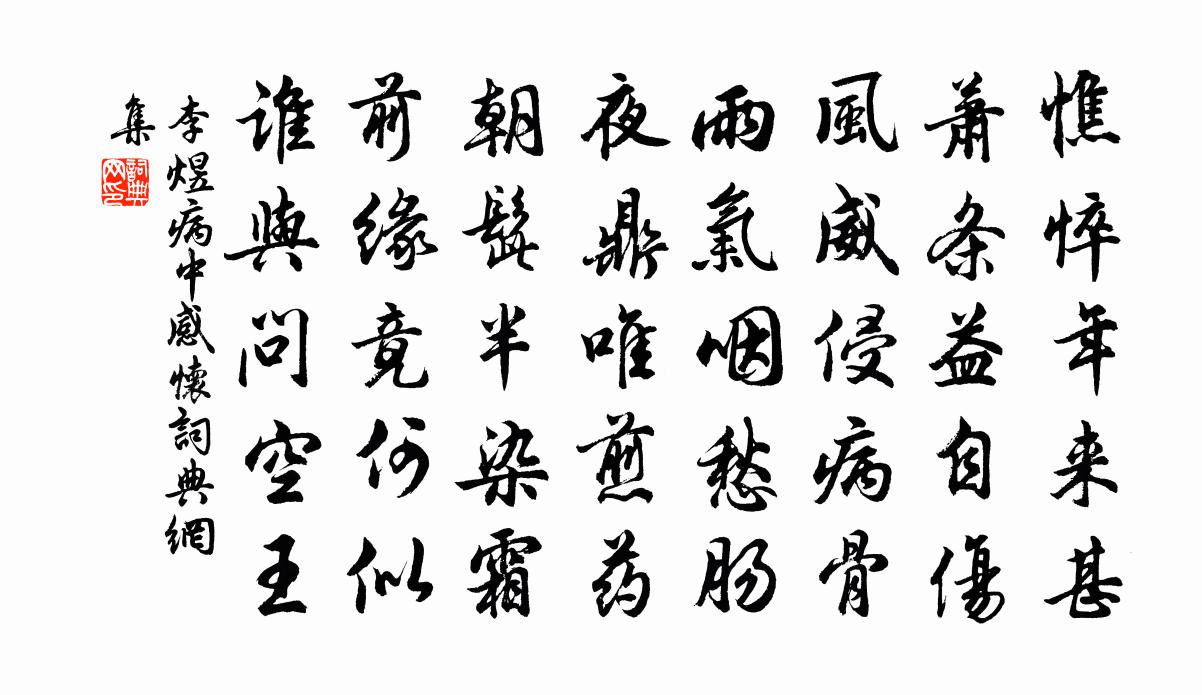 憔悴年来甚
萧条益自傷
風威侵病骨
雨氣咽愁肠
夜鼎唯煎药
朝髭半染霜
前缘竟何似
谁與问空王
李煜病中感懷詞典網
集
詞典
网印